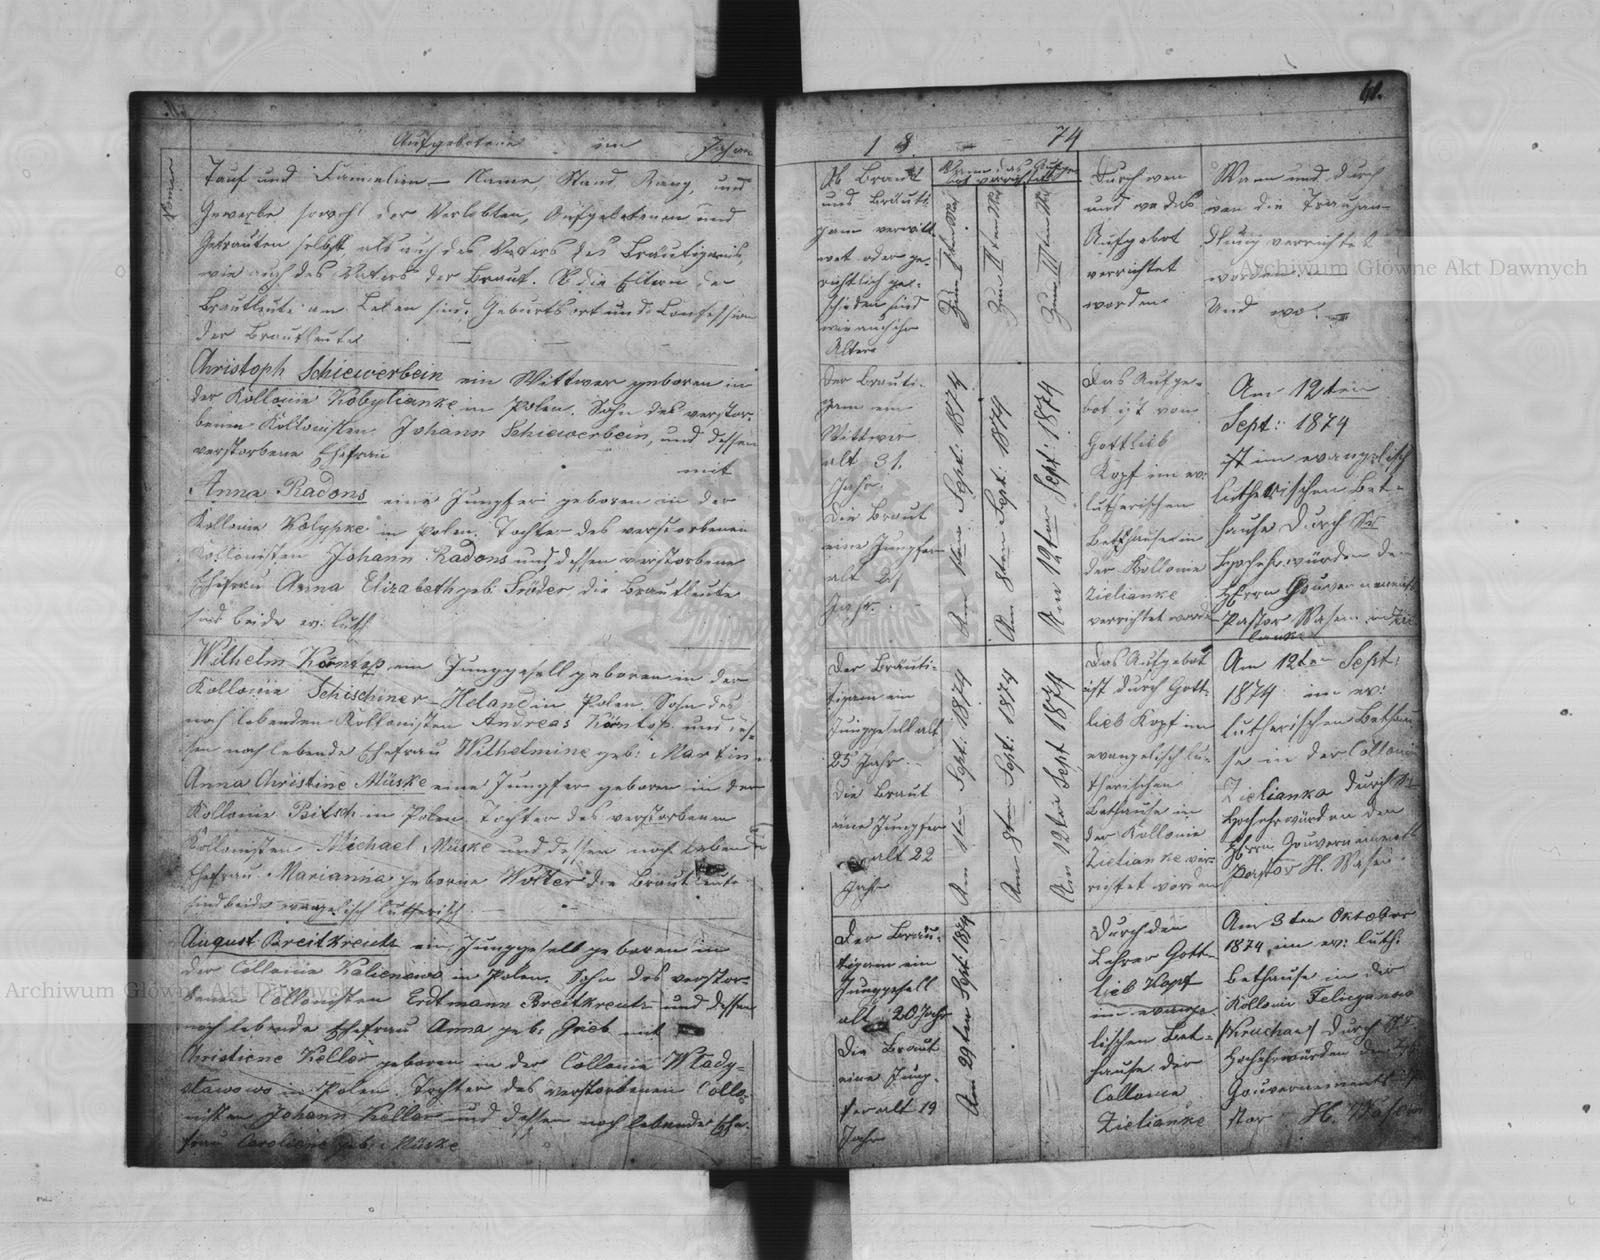 Aufgebotene im Jahre
Tauf und Familien - Name, Stand Rang, und
Gewerbe sowohl der Verlobten, Aufgebotenen und
Getrauten selbst, als auch des Vaters des Bräutigams,
wie auch des Vaters der Braut. Ob die Eltern der
Brautleute am Leben sind, Geburtsort und Confession
der Brautleute
Christoph Schiewerbein ein Wittwer geboren in
der Kollonie Kobylianke in Polen. Sohn des verstor-
benen Kollonisten Johann Schiewerbein, und dessen
verstorbene Ehefrau
mit
Anna Radons eine Jungfer geboren in der
Kollonie in Polen. Tochter des verstorbenen
Kollonisten Johann Radons und dessen verstorbene
Ehefrau Anna Elizabeth geb: die Brautleute
sind beide ev: luth:
Wilhelm ein Junggesell geboren in der
Kollonie in Polen, Sohn des
noch lebenden Kollonisten Andreas und des-
sen noch lebende Ehefrau Wilhelmine geb: Martin.
Anna Christine Müske eine Jungfer geboren in der
Kollonie in Polen. Tochter des verstorbenen
Kollonisten Michael Müske und dessen noch lebende
Ehefrau Marianna geborne Wolter die Brautleute
sind beide evangelisch lutherisch
August Breitkreutz ein Junggesell geboren in
der Collonie in Polen. Sohn des verstor-
benen Collonisten Erdtmann Breitkreutz und dessen
noch lebende Ehefrau Anna geb: mit
Christiene Keller geboren in der Collonie Wlady-
slawowo in Polen. Tochter des verstorbenen Collo-
nisten Johann Keller und dessen noch lebende Ehe-
frau Caroliene geb: Müske
61.
18 74
Ob Braut
und Bräuti
gam verwitt
wet oder ge-
richtlich ge-
schieden sind
wie auch ihr
Alter
Wann das
Zum Iten Mal
Zum IIten Mal
Zum IIIten Mal
Durch wen
und wo das
Aufgebot
verrichtet
worden
Wann und durch
wen die Trauhan-
dlung verrichtet
worden
Und wo.
Der Bräuti-
gam ein
Wittwer
alt 31.
Jahr.
Die Braut
eine Jungfer
alt 21
Jahr.
Am 1ten Sept: 1874
Am 8ten Sept: 1874
Am 12ten Sept: 1874
Das Aufge-
bot ist von
Gottlieb
Kopf im ev:
lutherischen
Bethause in
der Kollonie
Zielianke
verrichtet word
Am 12ten
Sept: 1874
ist im evangelisch
lutherischen Bet-
hause durch Sr
Hochehrwürden den
Herrn Gouvernements
Pastor Wasem in Zie
lianke
Der Bräuti-
tigam ein
Junggesell alt
25 Jahr
Die Braut
eine Jungfer
alt 22
Jahr
Am 1ten Sept: 1874
Am 8ten Sept: 1874
Am 12ten Sept 1874
Das Aufgebot
ist durch Gott-
lieb Kopf im
evangelisch lu-
therischen
Bethause in
der Kollonie
Zielianke ver-
richtet worden
Am 12ten Sept:
1874 im ev:
lutherischen Bethau
se in der Collonie
Zielianka durch Sr
Hochehrwürden den
Herrn Gouvernements
Pastor H. Wasem.
Der Bräu-
tigam ein
Junggesell
alt 20 Jahr
Die Braut
eine Jung-
fer alt 19
Jahr
Am 29ten Sept: 1874
Durch den
Lehrer Gott-
lieb Kopf
im evange-
lischen Bet-
hause der
Collonie
Zielianke
Am 3ten Oktober
1874 im ev: luth:
Bethause in der
Kollonie
durch Sr.
Hochehrwürden den
Gouvernements Pa
stor H. Wasem
Archiwum Główne Akt Dawnych
Archiwum Główne Akt Dawnych